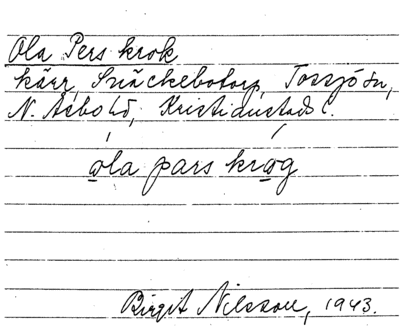 Ola Pers krok
kärr, Snäckebotorp, Tossjö sn,
N. Åsbo hd, Kristianstads l.
ola pars krog
Birgit Nilsson, 1943.